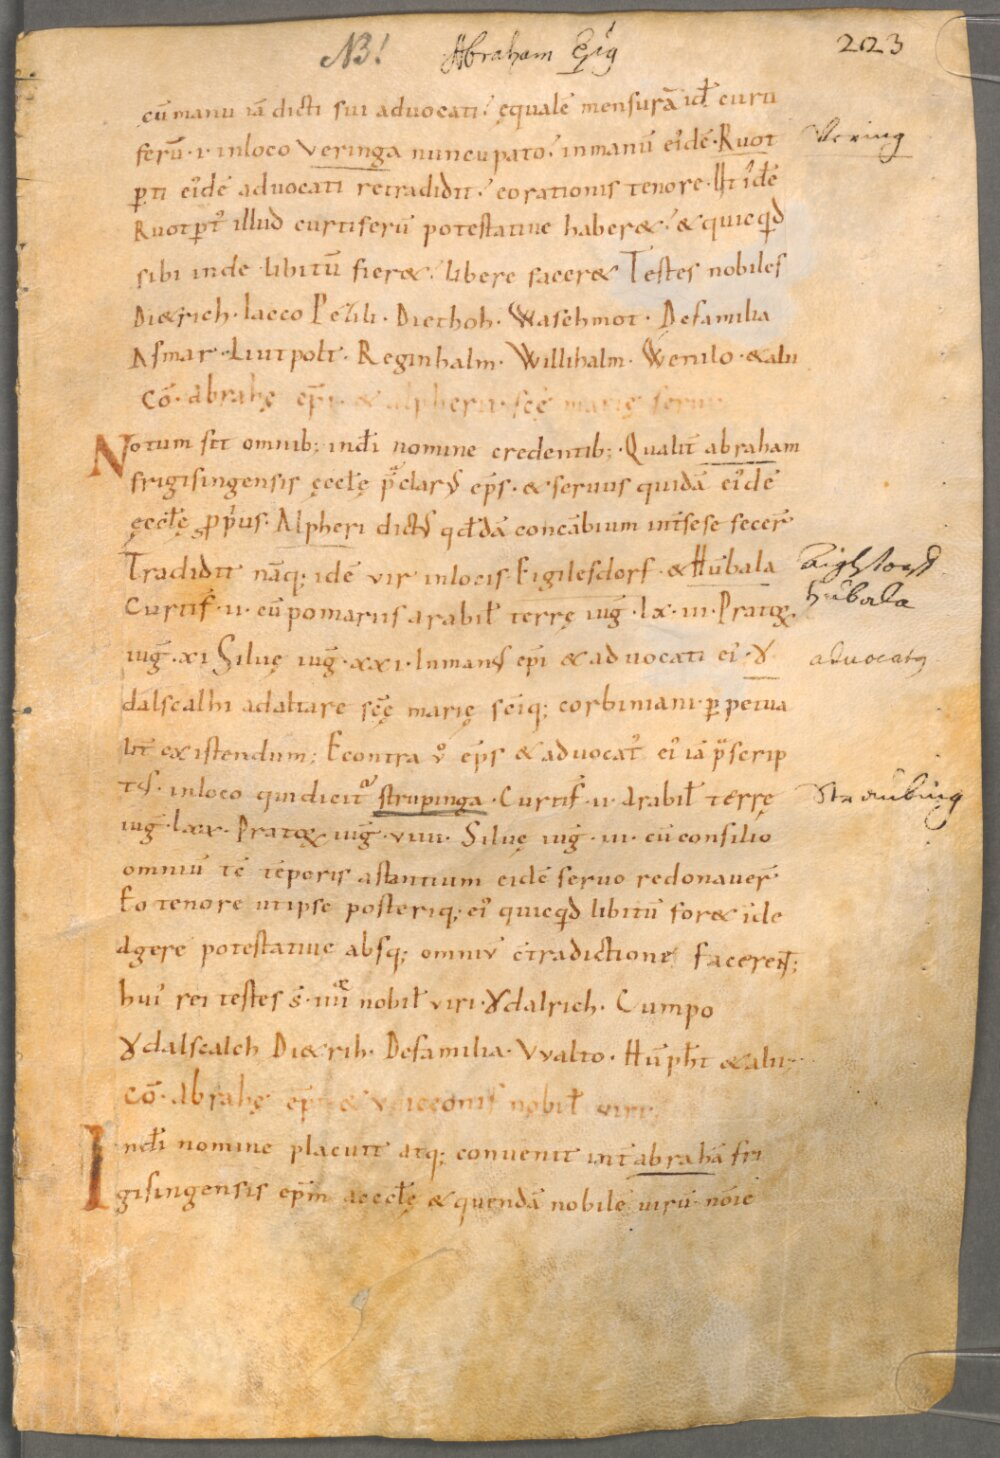 NB! Abraham Epus 223
cū manu iā dicti sui advocati. ęqualē mensurā id÷ curti
ferū ·i· in loco veringa nuncupato. in manū eidē Ruot
Vering
ꝑti eidē advocati retradidit. eo rationis tenore. Ut idē
Ruotꝑt illud curtiferū potestative haber&. & quicqd
sibi inde libitū fier&. libere facer& Testes nobiles
Di&rich. Iacco Pezili. Diethoh. Waschmot. De familia
Asmar. Liutpolt. Reginhalm. Willihalm. Wenilo. & alii
Cō. Abrahę ep̄i. & alpherii. scę marię servi
Notum sit omnib; in dī nomine credentib; Qualit̄ abraham
frigisingensis ęcclę p̄clarus ep̄s. & servus quidā eidē
ęcclę ꝓprius. Alpheri dictus qddā concābium int̄ sese fecer̄
Tradidit nāq; idē vir in locis Eigilesdorf. & Hūbala
Aiglstorff
Hūbala
Curtif̄ ·ii· cū pomariis arabil̄ terrę iug̃ ·lx·iii· Pratoꝝ
iug̃ ·xi Silvę iug̃ ·xxi· In manus ep̄i & advocati ei· Ỿ
advocatꝯ
dalscalhi ad altare scę marię sciq; corbiniani ꝑpetua
lit̄ existendum; Econtra v̊ ep̄s & advocat̄ ei iā p̄scrip
tus. in loco qui dicit̄ strupinga. Curtif̄ ·ii· Arabil̄ terrę
Straubing
iug̃ ·lxx· Pratoꝝ iug̃ ·viiii· Silvę iug̃ ·iii· cū consilio
omniū tc̄ tēporis astantium eidē servo redonaver̄
Eo tenore ut ipse posteriq; ei quicqd libitū for& īde
agere potestative absq; omniū c̄tradictione facerent;
hui rei testes s̄ nobil̄ viri. Ỿdalrich. Cumpo
Ỿdalscalch Di&rih. De familia. VValto. Hūpht & alii
Cō. Abrahę ep̄i & nobil̄ viri
In dī nomine placuit atq; convenit int̄ abrahā fri
gisingensis ep̄m aecclę & quendā nobilē virū nōie